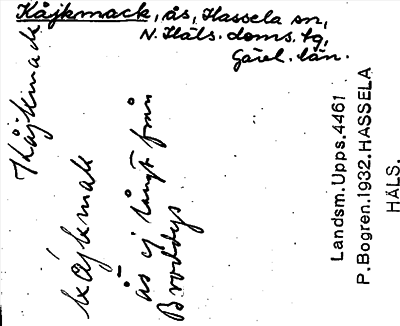 Kåjkmack, ås, Hassela sn,
N. Häls. doms. tg,
Gävl. län.
Kåjkmack
kájkmak
ås ej långt från
Broddys
Landsm. Upps. 4461
P. Bogren. 1932. HASSELA
HÄLS.